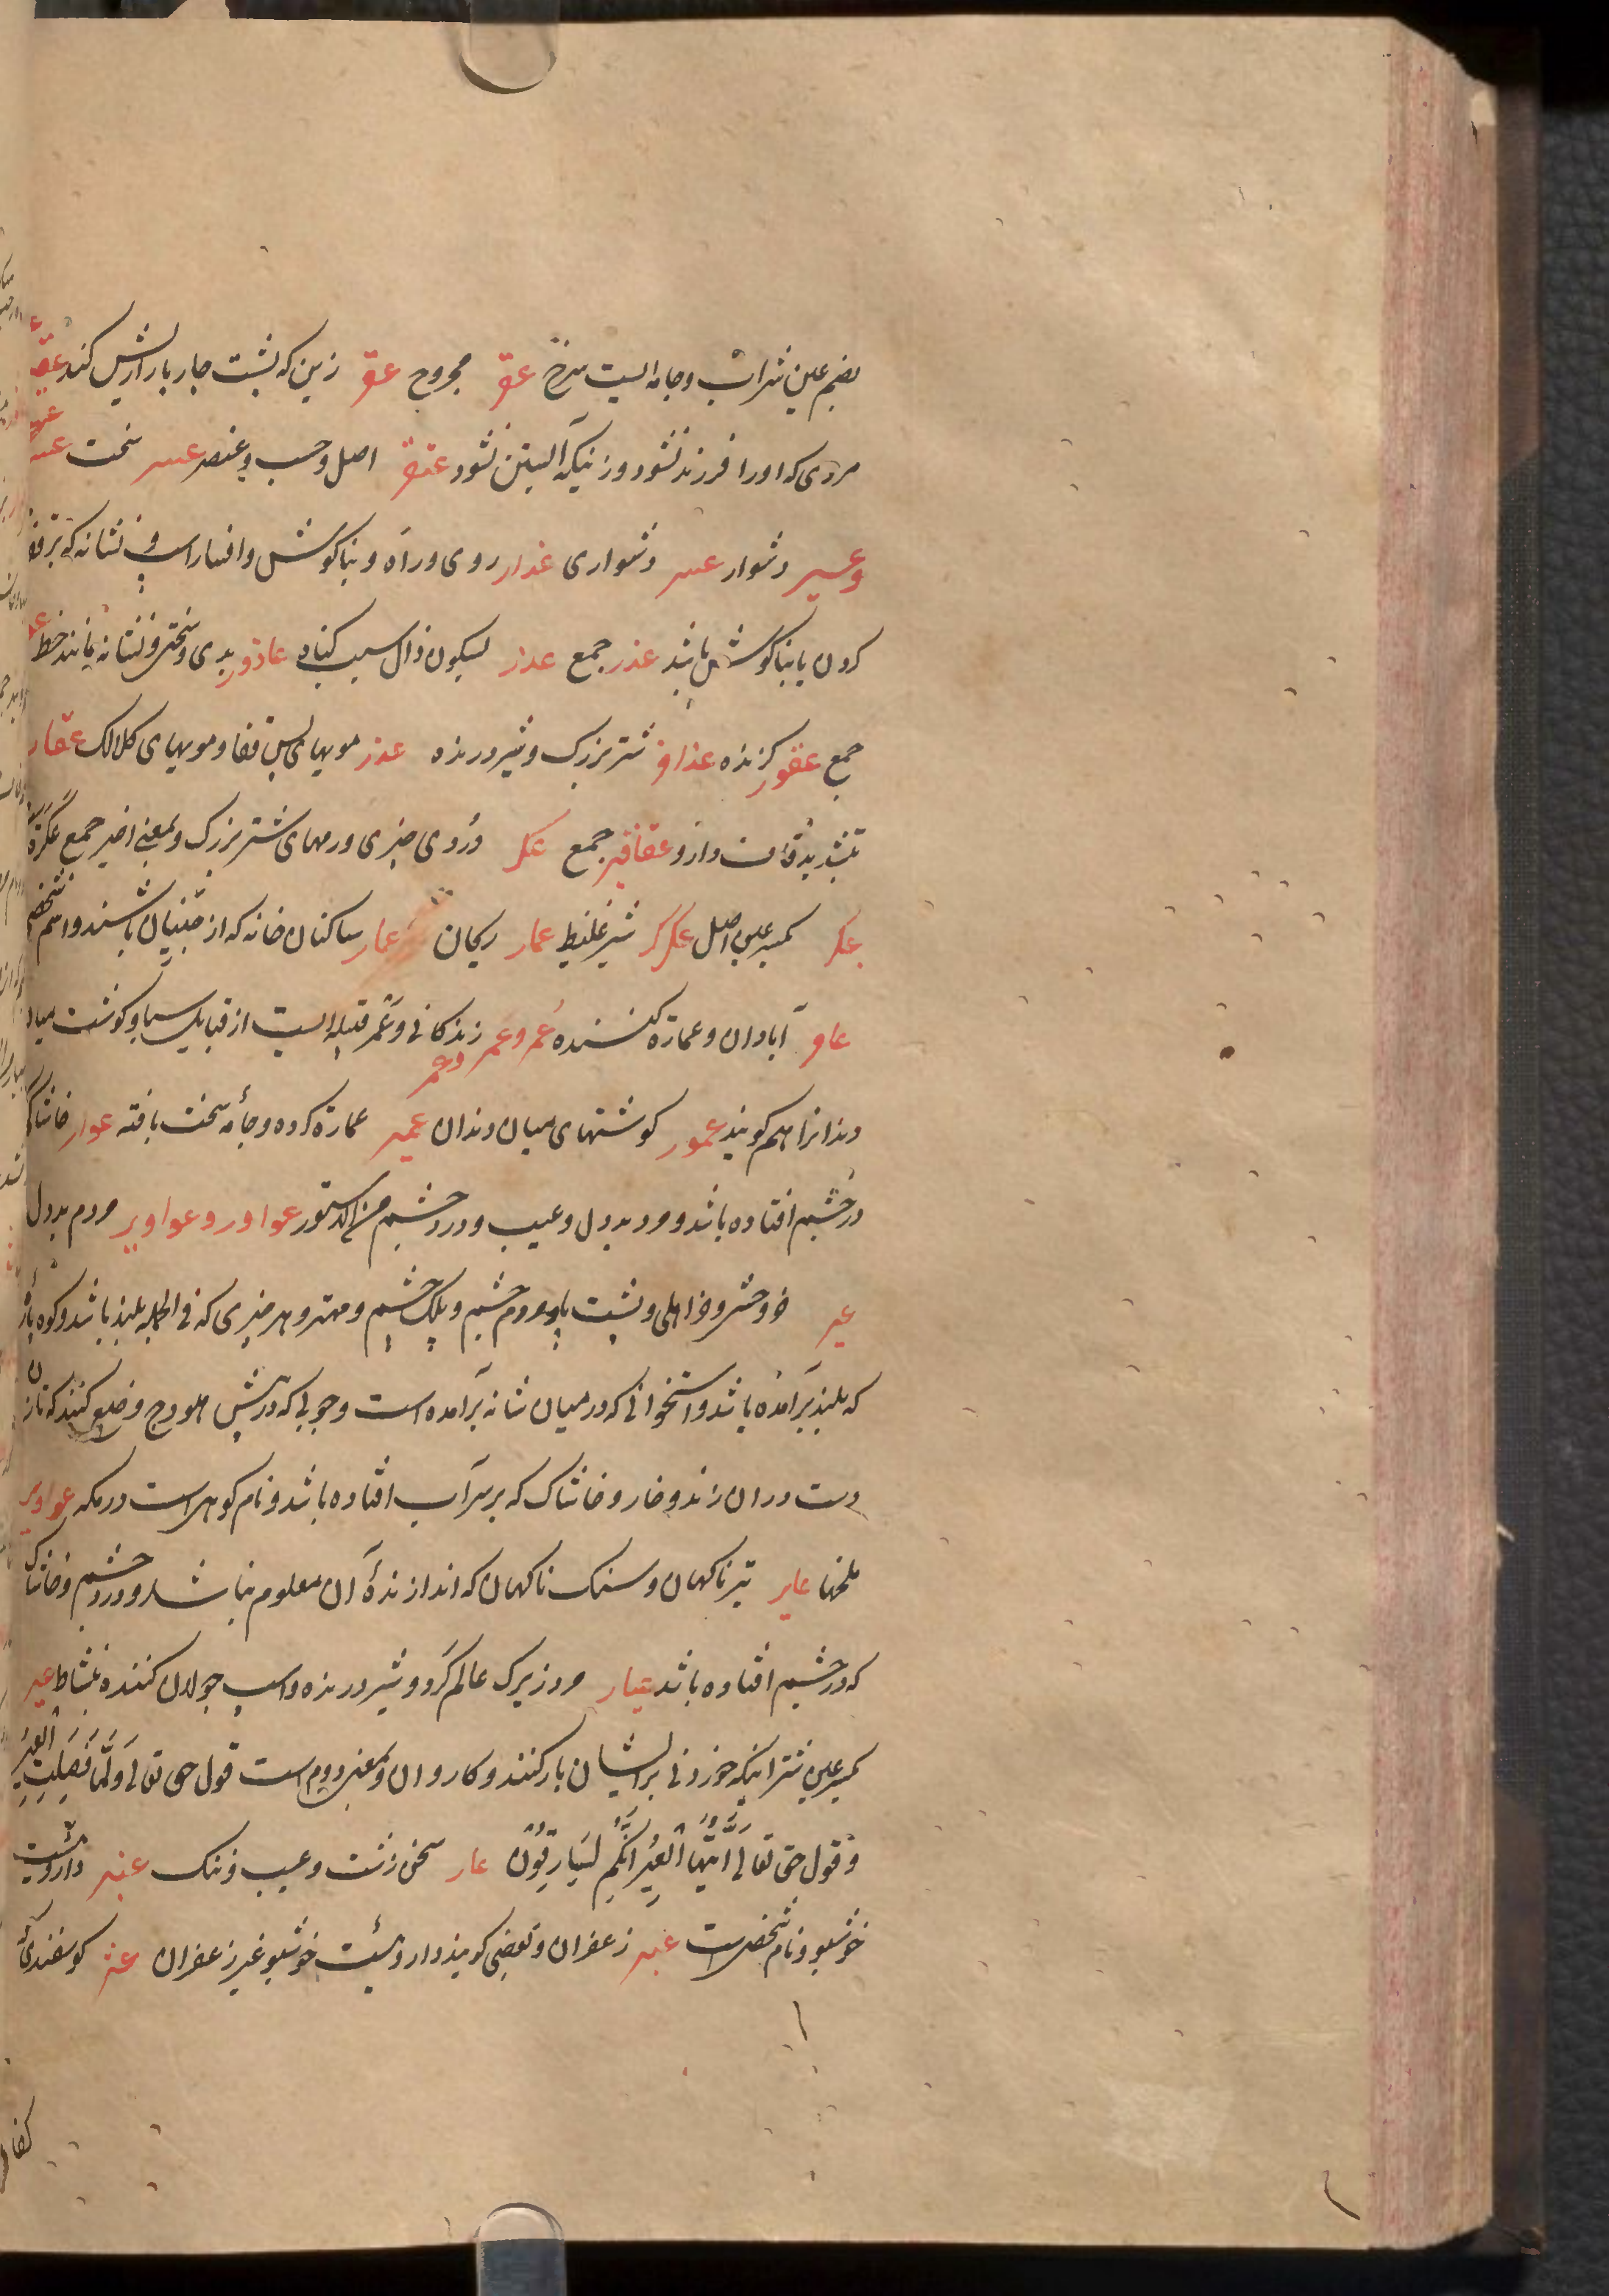 بضم عین شراب و جامه ایست سرخ عقر مجروح عقر زین که پشت چارپا را ریش کند
مردی که اورا فرزند نشود و زنیکه آبستن نشود عنقر اصل و حسب و عنصر عسر سخت
وعسیر دشوار عسر دشواری عذار روی و راه و بناکوش و افسار اسپ و نشانه که بر قفا
کردن یا بناکوش باشد عذر جمع عذر بسکون ذال سبب کناه عاذور بدی و سختی و نشانه مانند خط
جمع عقور کزنده عذافر شتر بزرک و شیر درنده عذر مویهای پس قفا و مویهای کلالک عقار
بتشدید قاف دارو عقاقیر جمع عکر دردی چیزی و رمهای شتر بزرک و بمعنی اخیر جمع عکرة
عکر بکسر عین اصل عکرکر شیر غلیظ عمار ریحان عمار ساکنان خانه که از جنیان باشند و اسم شخصی
عامر آبادان و عمارة کننده عُمر وعَمر وعمر زندکانی و عَمر قبیله ایست از قبایل سبا و کوشت میان
دندانرا هم کویند عمور کوشتهای میان دندان عمیر عمارة کرده و جامهٔ سخت بافته عوار خاشاک
در چشم افتاده باشد و مرد بددل و عیب و درد چشم عواور و عواویر مردم بددل
عیر خر وحشی و خر اهلی و پشت پا و مردم چشم و پلک چشم و مهتر و هر چیزی که فی الجمله بلند باشد و کوه
که بلند برآمده باشد و استخوانی که در میان شانه برآمده است و چوبی که در پیش هودج وضع کنند که
دست دران زند و خار و خاشاک که بر سر آب افتاده باشد و نام کوهی است در مکه عواویر
ملخها عایر تیر ناکهان و سنک ناکهان که اندازندهٔ آن معلوم نباشد و درد چشم و خاشاک
که در چشم افتاده باشد عیار مرد زیرک عالم کرد و شیر درنده و اسپ جولان کننده بنشاط عیر
بکسر عین شترانیکه خوردنی برایشان بار کنند و کاروان و بمعنی دویم است قول حق تعالی وَلَمَّا فَصَلَتِ الْعِیرُ
و قول حق تعالی اَیَّتُهَا الْعِیرُ اِنَّکُمْ لَسَارِقُونَ عار سخن زشت و عیب و ننک عنبر داروئیست
خوشبو و نام شخصی است عبیر زعفران و بعضی کویند داروئیست خوشبو غیر زعفران عنز کوسفند